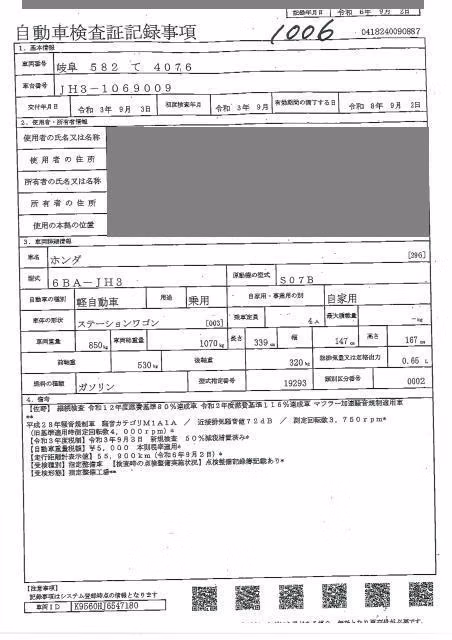 記録年月日 令和 6年 9月 2日
自動車検査証記録事項 1006 0418240090887
1. 基本情報
車両番号 岐阜 582 て 4076
車台番号 JH3-1069009
交付年月日 令和 3年 9月 3日 初度検査年月 令和 3年 9月 有効期間の満了する日 令和 8年 9月 2日
2. 使用者・所有者情報
使用者の氏名又は名称
使用者の住所
所有者の氏名又は名称
所有者の住所
使用の本拠の位置
3. 車両詳細情報
車名 ホンダ [296]
型式 6BA-JH3 原動機の型式 S07B
自動車の種別 軽自動車 用途 乗用 自家用・事業用の別 自家用
車体の形状 ステーションワゴン [003] 乗車定員 4人 最大積載量 -kg
車両重量 850kg 車両総重量 1070kg 長さ 339cm 幅 147cm 高さ 167cm
前軸重 530kg 後軸重 320kg 総排気量又は定格出力 0.65 L
燃料の種類 ガソリン 型式指定番号 19293 類別区分番号 0002
4. 備考
【佐野】 継続検査 令和12年度燃費基準80%達成車 令和2年度燃費基準116%達成車 マフラー加速騒音規制適用車
**
平成28年騒音規制車 騒音カテゴリM1A1A / 近接排気騒音値72dB / 測定回転数3,750rpm*
(旧基準適用時測定回転数4,000rpm)*
【令和3年度税制】令和3年9月3日 新規検査 50%減税措置済み*
【自動車重量税額】¥5,000 本則税率適用*
【走行距離計表示値】55,900km (令和6年9月2日)*
【受検種別】指定整備車 【検査時の点検整備実施状況】点検整備記録簿記載あり*
【受検形態】指定整備工場**
【注意事項】
記録事項はシステム登録時点の情報となります
車両ID K9560HJ6547180